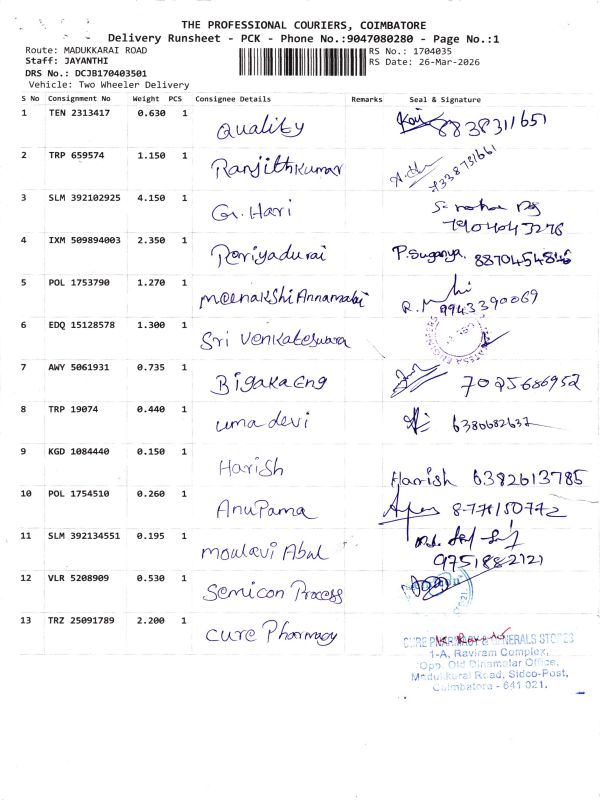 THE PROFESSIONAL COURIERS, COIMBATORE
Delivery Runsheet - PCK - Phone No.:9047080280 - Page No.:1
Route: MADUKKARAI ROAD RS No.: 1704035
Staff: JAYANTHI RS Date: 26-Mar-2026
DRS No.: DCJB170403501
Vehicle: Two Wheeler Delivery
S No Consignment No Weight PCS Consignee Details Remarks Seal & Signature
1 TEN 2313417 0.630 1 Quality 8838311651
2 TRP 659574 1.150 1 Ranjithkumar
3 SLM 392102925 4.150 1 G. Hari
7904043276
4 IXM 509894003 2.350 1 Periyadurai P. Suganya. 8870454846
5 POL 1753790 1.270 1 meenakshi Annamalai
9943390069
6 EDQ 15128578 1.300 1 Sri Venkateswara
7 AWY 5061931 0.735 1 Bigaka Eng 7025686952
8 TRP 19074 0.440 1 uma devi 6380682637
9 KGD 1084440 0.150 1 Harish Harrish 6382613785
10 POL 1754510 0.260 1 Anupama
11 SLM 392134551 0.195 1 moulavi Abul
9751882121
12 VLR 5208909 0.530 1 Semicon Process
13 TRZ 25091789 2.200 1 Cure Pharmacy
CURE PHARMACY & GENERALS STORES
1-A, Raviram Complex,
Opp. Old Dinamalar Office,
Madukkarai Road, Sidco-Post,
Coimbatore - 641 021.